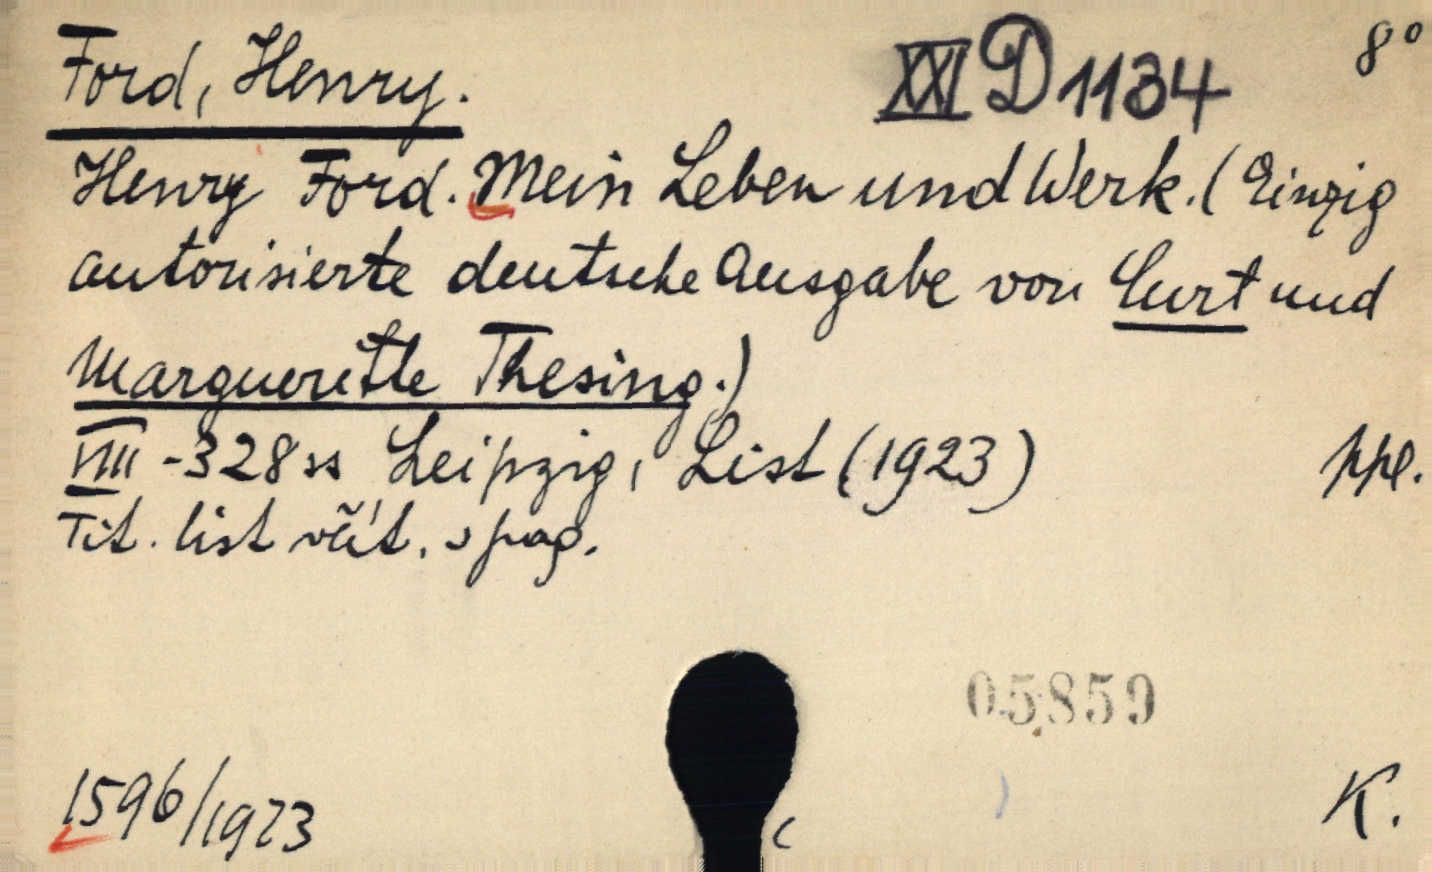 Ford, Henry.
XXI D 1134
8°
Henry Ford. Mein Leben und Werk. (Einzig
autorisierte deutsche Ausgabe von Curt und
Margueritte Thesing.)
VIII - 328 ss Leipzig, List (1923)
ppl.
Tit. list včít. v pag.
05859
1596/1923
K.